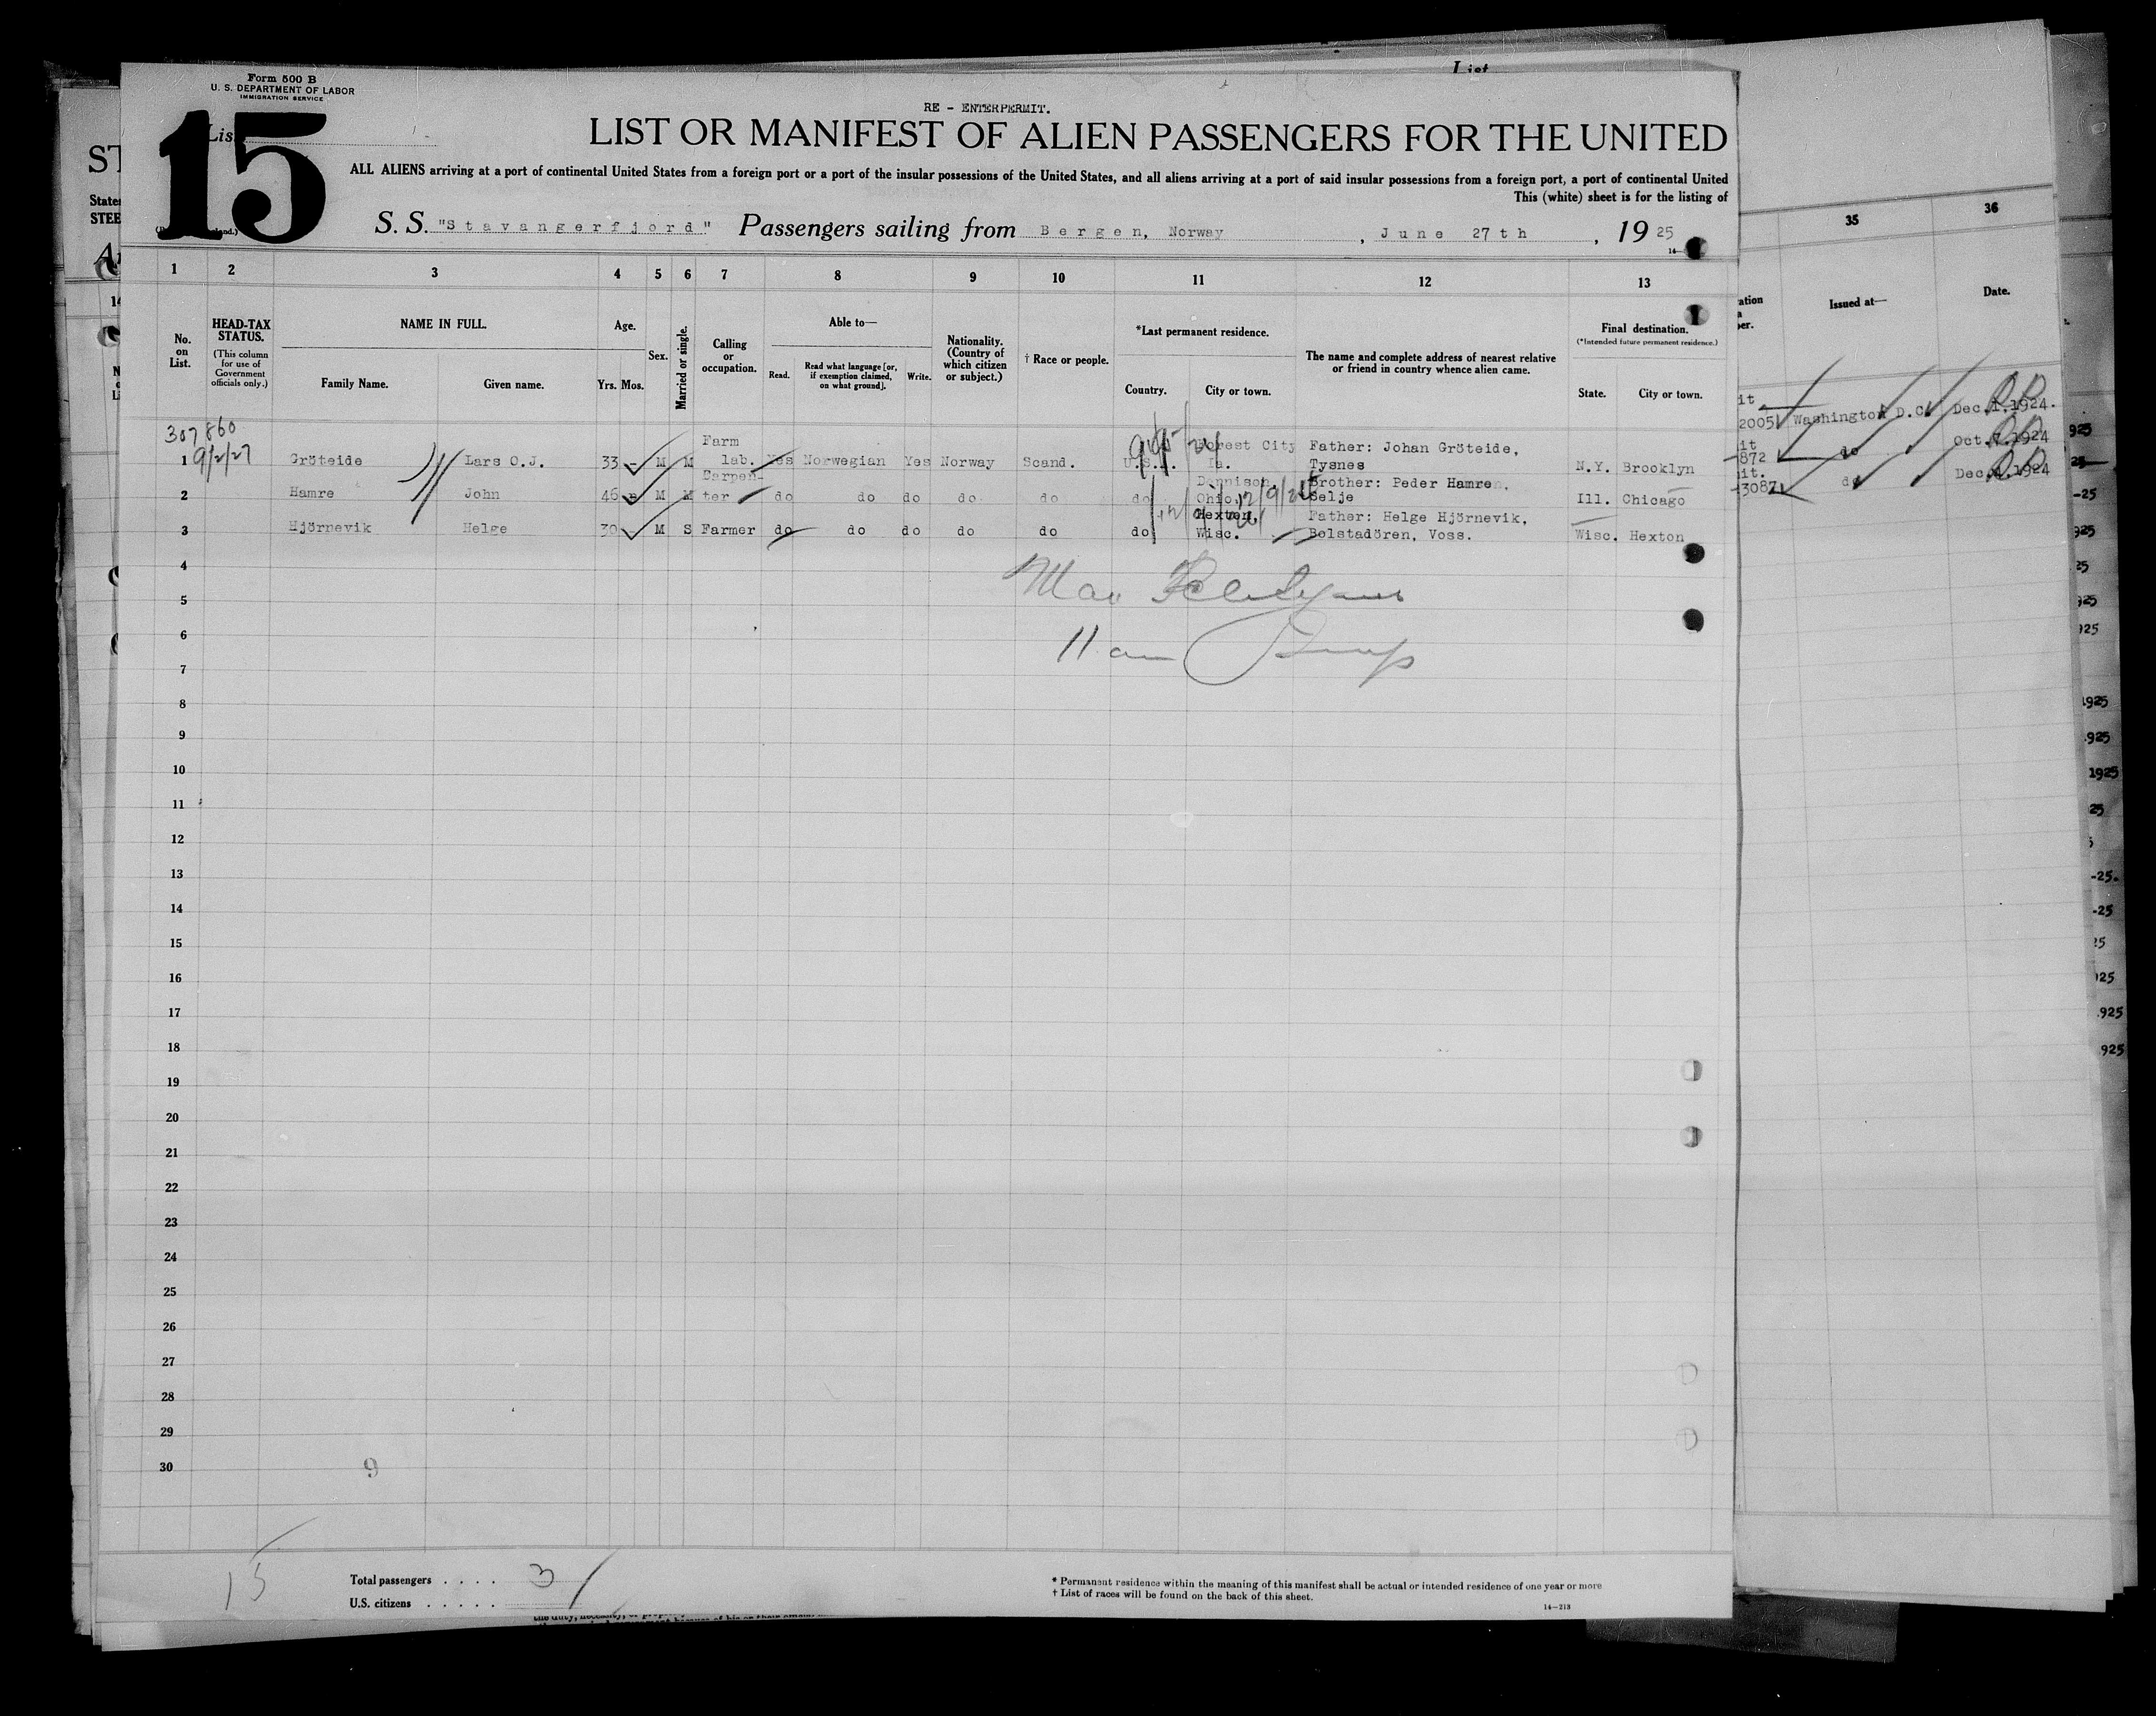 Form 500 B
U. S. DEPARTMENT OF LABOR
IMMIGRATION SERVICE
List
15
RE - ENTERPERMIT.
LIST OR MANIFEST OF ALIEN PASSENGERS FOR THE UNITED
ALL ALIENS arriving at a port of continental United States from a foreign port or a port of the insular possessions of the United States, and all aliens arriving at a port of said insular possessions from a foreign port, a port of continental United
This (white) sheet is for the listing of
S. S. "Stavangerfjord" Passengers sailing from Bergen, Norway, June 27th, 1925
1 2 3 4 5 6 7 8 9 10 11 12 13 35 36
No. on List.
HEAD-TAX STATUS.
(This column for use of Government officials only.)
NAME IN FULL.
Family Name. Given name.
Age.
Yrs. Mos.
Sex.
Married or single.
Calling or occupation.
Able to—
Read. Read what language [or, if exemption claimed, on what ground]. Write.
Nationality. (Country of which citizen or subject.)
† Race or people.
*Last permanent residence.
Country. City or town.
The name and complete address of nearest relative or friend in country whence alien came.
Final destination.
(*Intended future permanent residence.)
State. City or town.
Issued at—
Date.
307860
9/2/27
1 Gröteide Lars O.J. 33 M M Farm lab. Yes Norwegian Yes Norway Scand. U.S. Forest City Ia. Father: Johan Gröteide, Tysnes N.Y. Brooklyn
2005 Washington D.C. Dec.1.1924.
2 Hamre John 46 M M Carpenter do do do do do do Dennison, Ohio, Brother: Peder Hamre, Selje Ill. Chicago
872 do Oct.7.1924
3 Hjörnevik Helge 30 M S Farmer do do do do do do Hexton, Wisc. Father: Helge Hjörnevik, Bolstadören, Voss. Wisc. Hexton
3087 do Dec.4.1924
4
5
6
11 am
7
8
9
10
11
12
13
14
15
16
17
18
19
20
21
22
23
24
25
26
27
28
29
30
9
15
Total passengers . . . . 3
U.S. citizens . . . . .
* Permanent residence within the meaning of this manifest shall be actual or intended residence of one year or more
† List of races will be found on the back of this sheet.
14—213